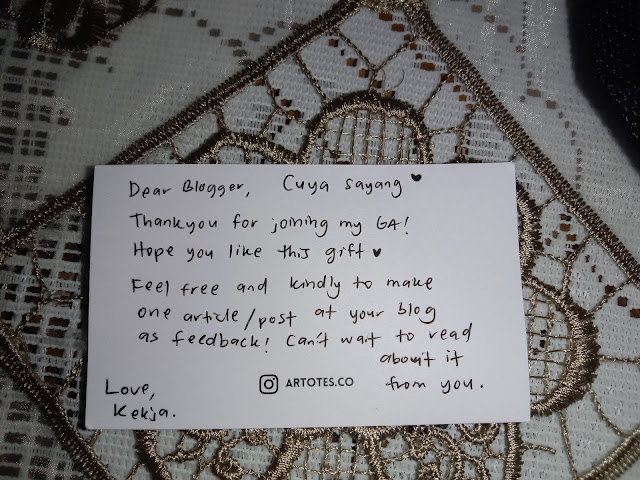 Dear Blogger, Cuya sayang ♥
Thankyou for joining my GA!
Hope you like this gift ♥
Feel free and kindly to make
one article/post at your blog
as feedback! Can't wait to read
about it
from you.
Love,
Kekja.
ARTOTES.CO